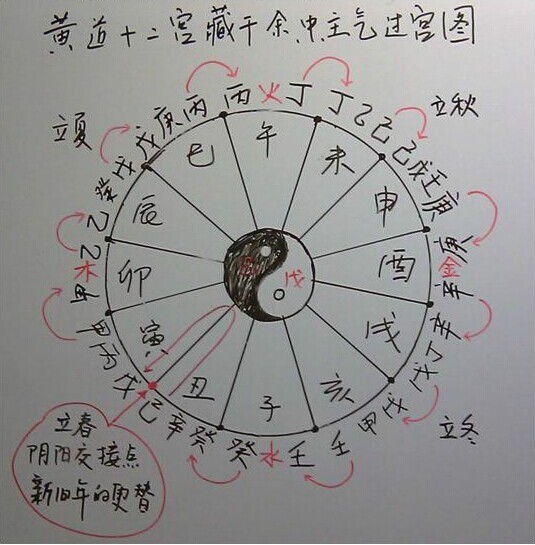 黄道十二宫藏干余中主气过宫图
立夏
立秋
立冬
立春
阴阳交接点
新旧年的更替
丙火丁
丁乙己
己戊壬庚
庚金辛
辛丁戊
戊甲壬
壬水癸
癸辛己
戊丙甲
甲木乙
乙癸戊
戊庚丙
午
未
申
酉
戌
亥
子
丑
寅
卯
辰
巳
己
戊